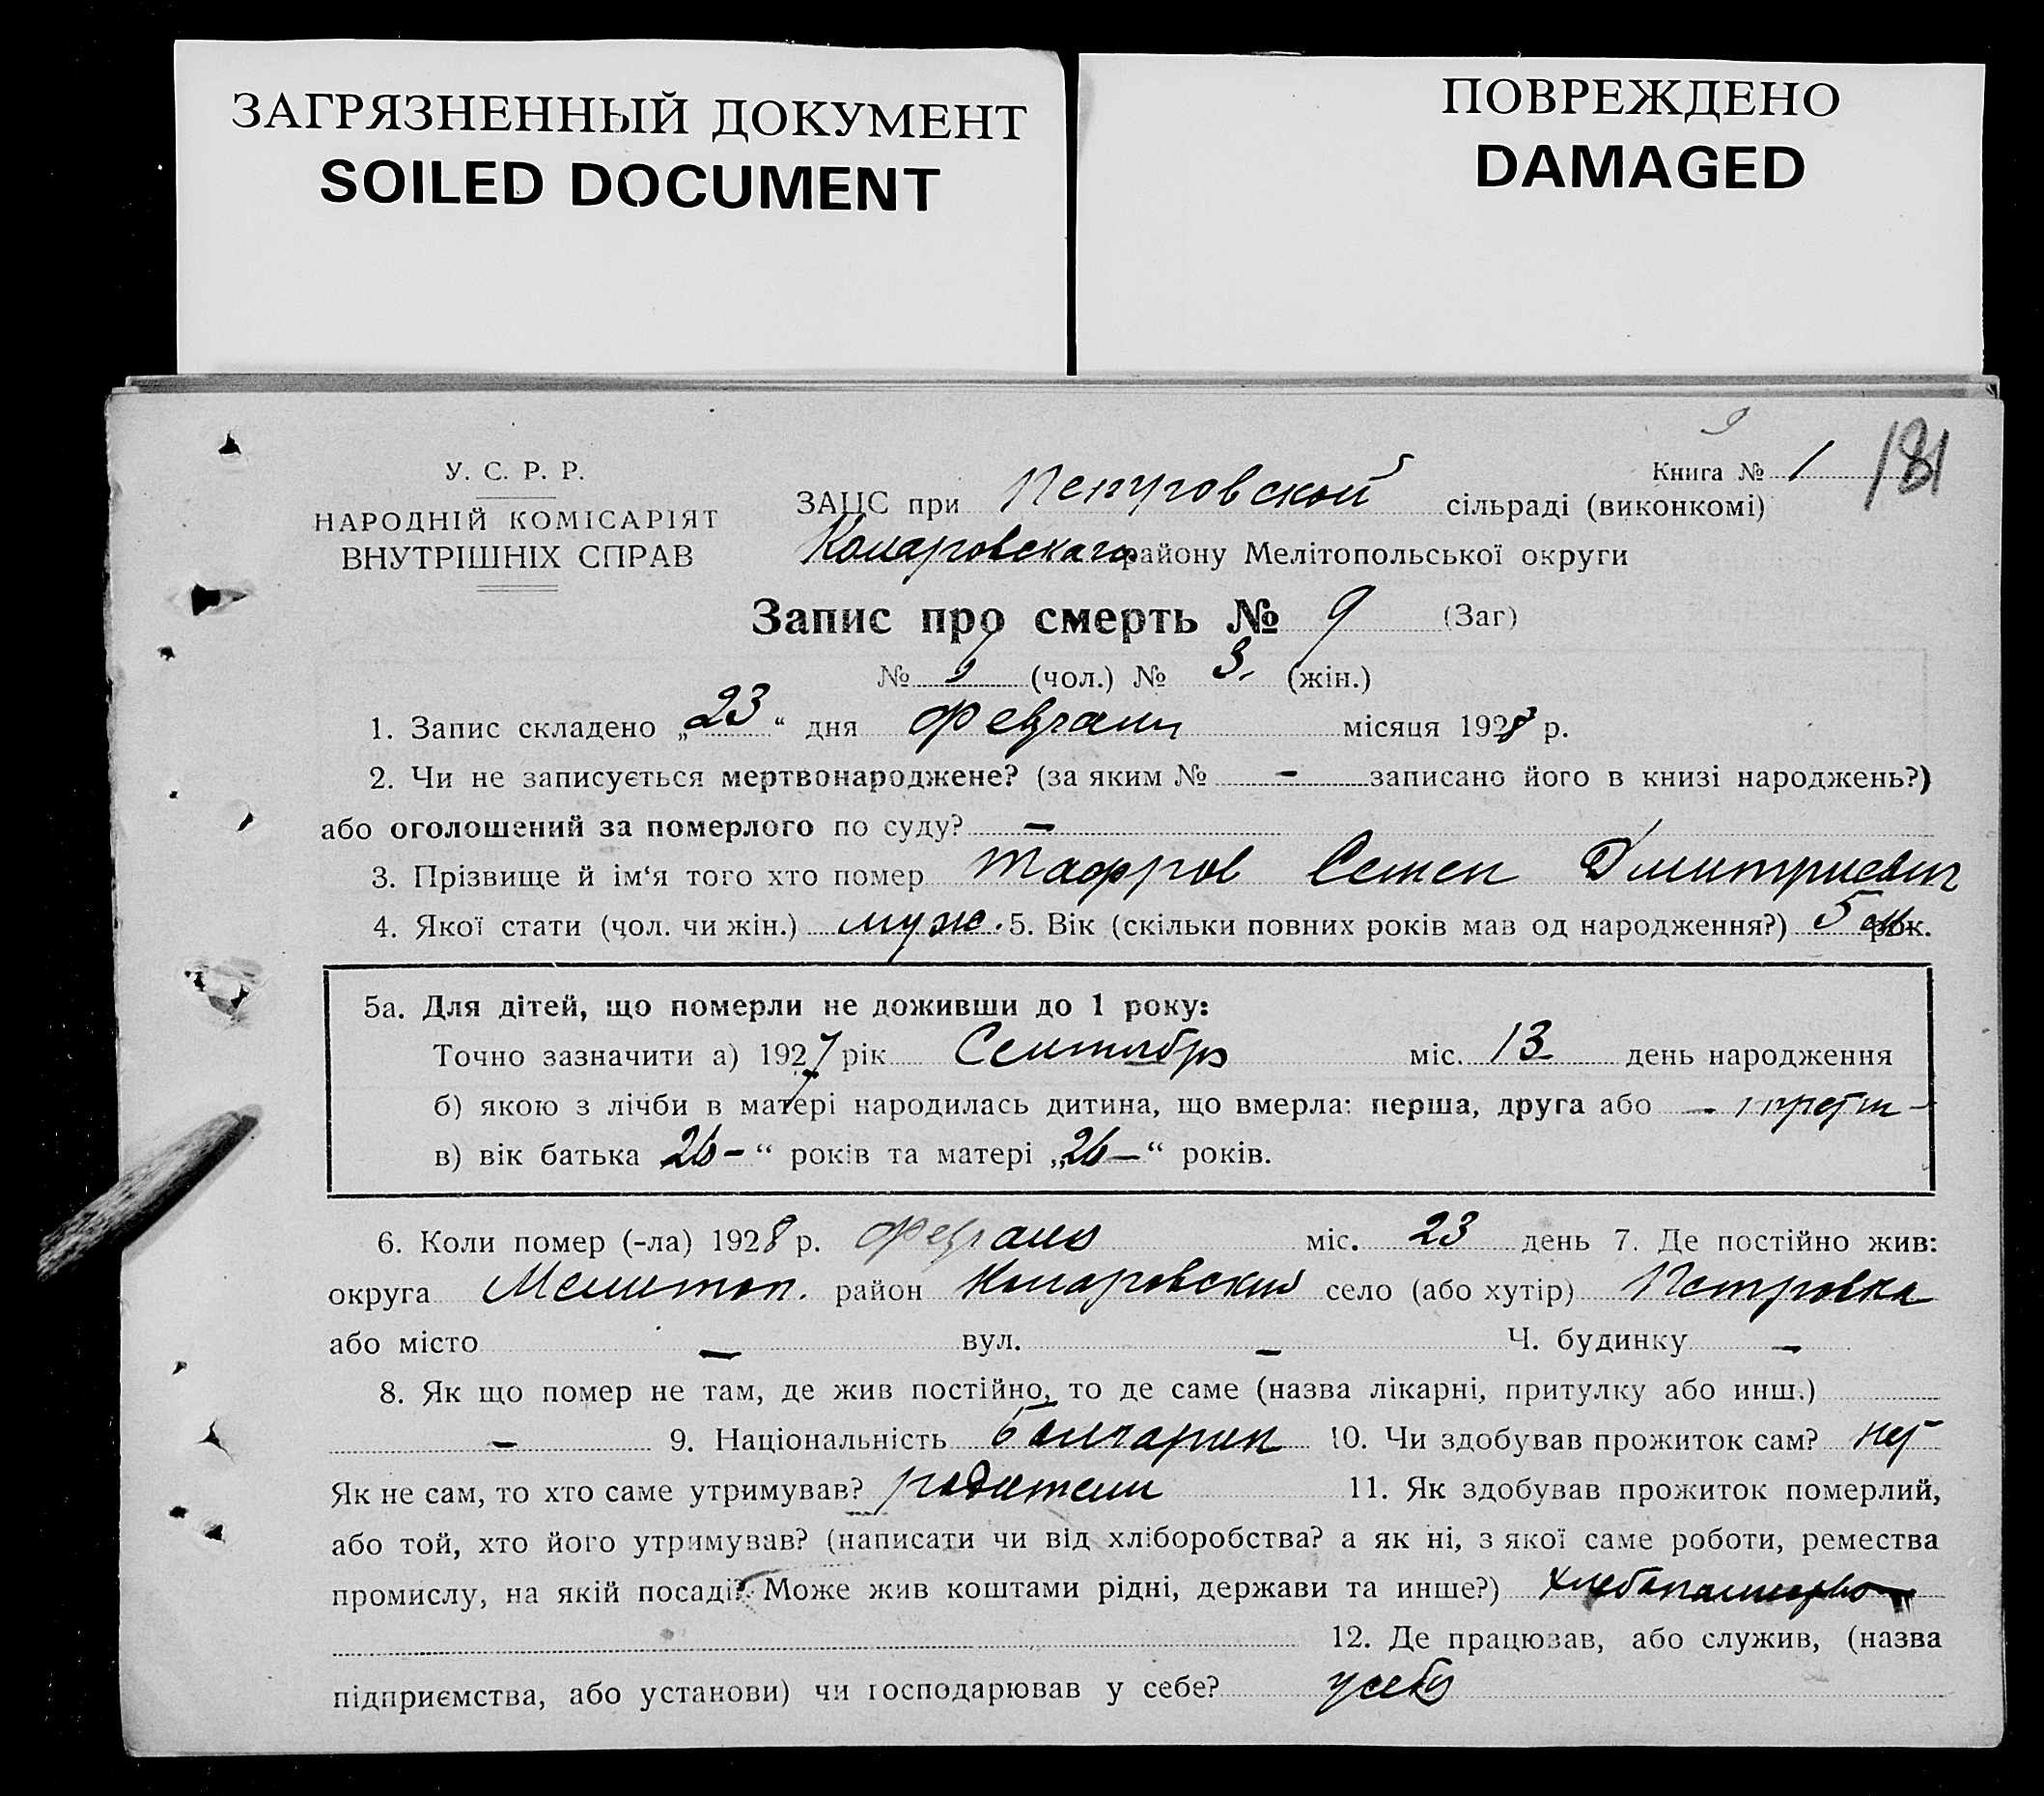 ЗАГРЯЗНЕННЫЙ ДОКУМЕНТ
SOILED DOCUMENT
ПОВРЕЖДЕНО
DAMAGED
181
Книга № 1
У. С. Р. Р.
НАРОДНІЙ КОМІСАРІЯТ
ВНУТРІШНІХ СПРАВ
ЗАЦС при Петровской сільраді (виконкомі)
Коларовского району Мелітопольської округи
Запис про смерть № 9 (Заг)
№ (чол.) № 3. (жін.)
1. Запис складено „23“ дня февраля місяця 1928 р.
2. Чи не записується мертвонароджене? (за яким № - записано його в книзі народжень?)
або оголошений за померлого по суду? -
3. Прізвище й ім‘я того хто помер Тафров Семен Дмитриевич
4. Якої стати (чол. чи жін.) муж. 5. Вік (скільки повних років мав од народження?) 5 рок.
5а. Для дітей, що померли не доживши до 1 року:
Точно зазначити а) 1927 рік Сентябрь міс. 13 день народження
б) якою з лічби в матері народилась дитина, що вмерла: перша, друга або -
в) вік батька 26 - “ років та матері „26 - “ років.
6. Коли помер (-ла) 1928 р. февраля міс. 23 день 7. Де постійно жив:
округа Мелитоп. район Коларовский село (або хутір) Петровка
або місто - вул. - Ч. будинку -
8. Як що помер не там, де жив постійно, то де саме (назва лікарні, притулку або инш.)
- 9. Національність болгарин 10. Чи здобував прожиток сам? нет
Як не сам, то хто саме утримував? родители 11. Як здобував прожиток померлий,
або той, хто його утримував? (написати чи від хліборобства? а як ні, з якої саме роботи, ремества
промислу, на якій посаді? Може жив коштами рідні, держави та инше?) хлебопашество
12. Де працював, або служив, (назва
підприємства, або установи) чи господарював у себе? у себя